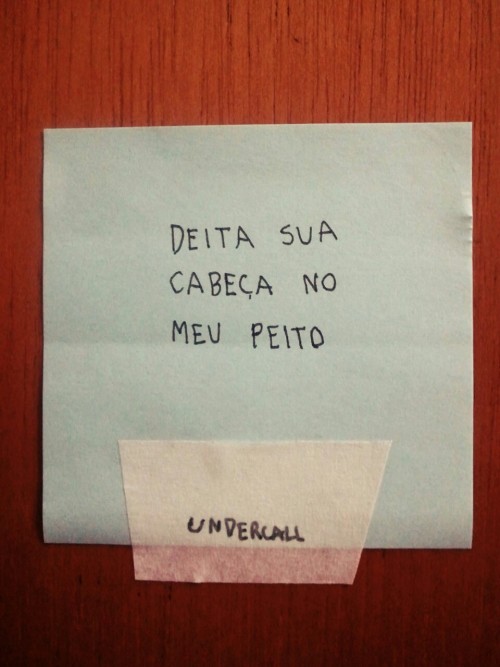 DEITA SUA
CABEÇA NO
MEU PEITO
UNDERCALL